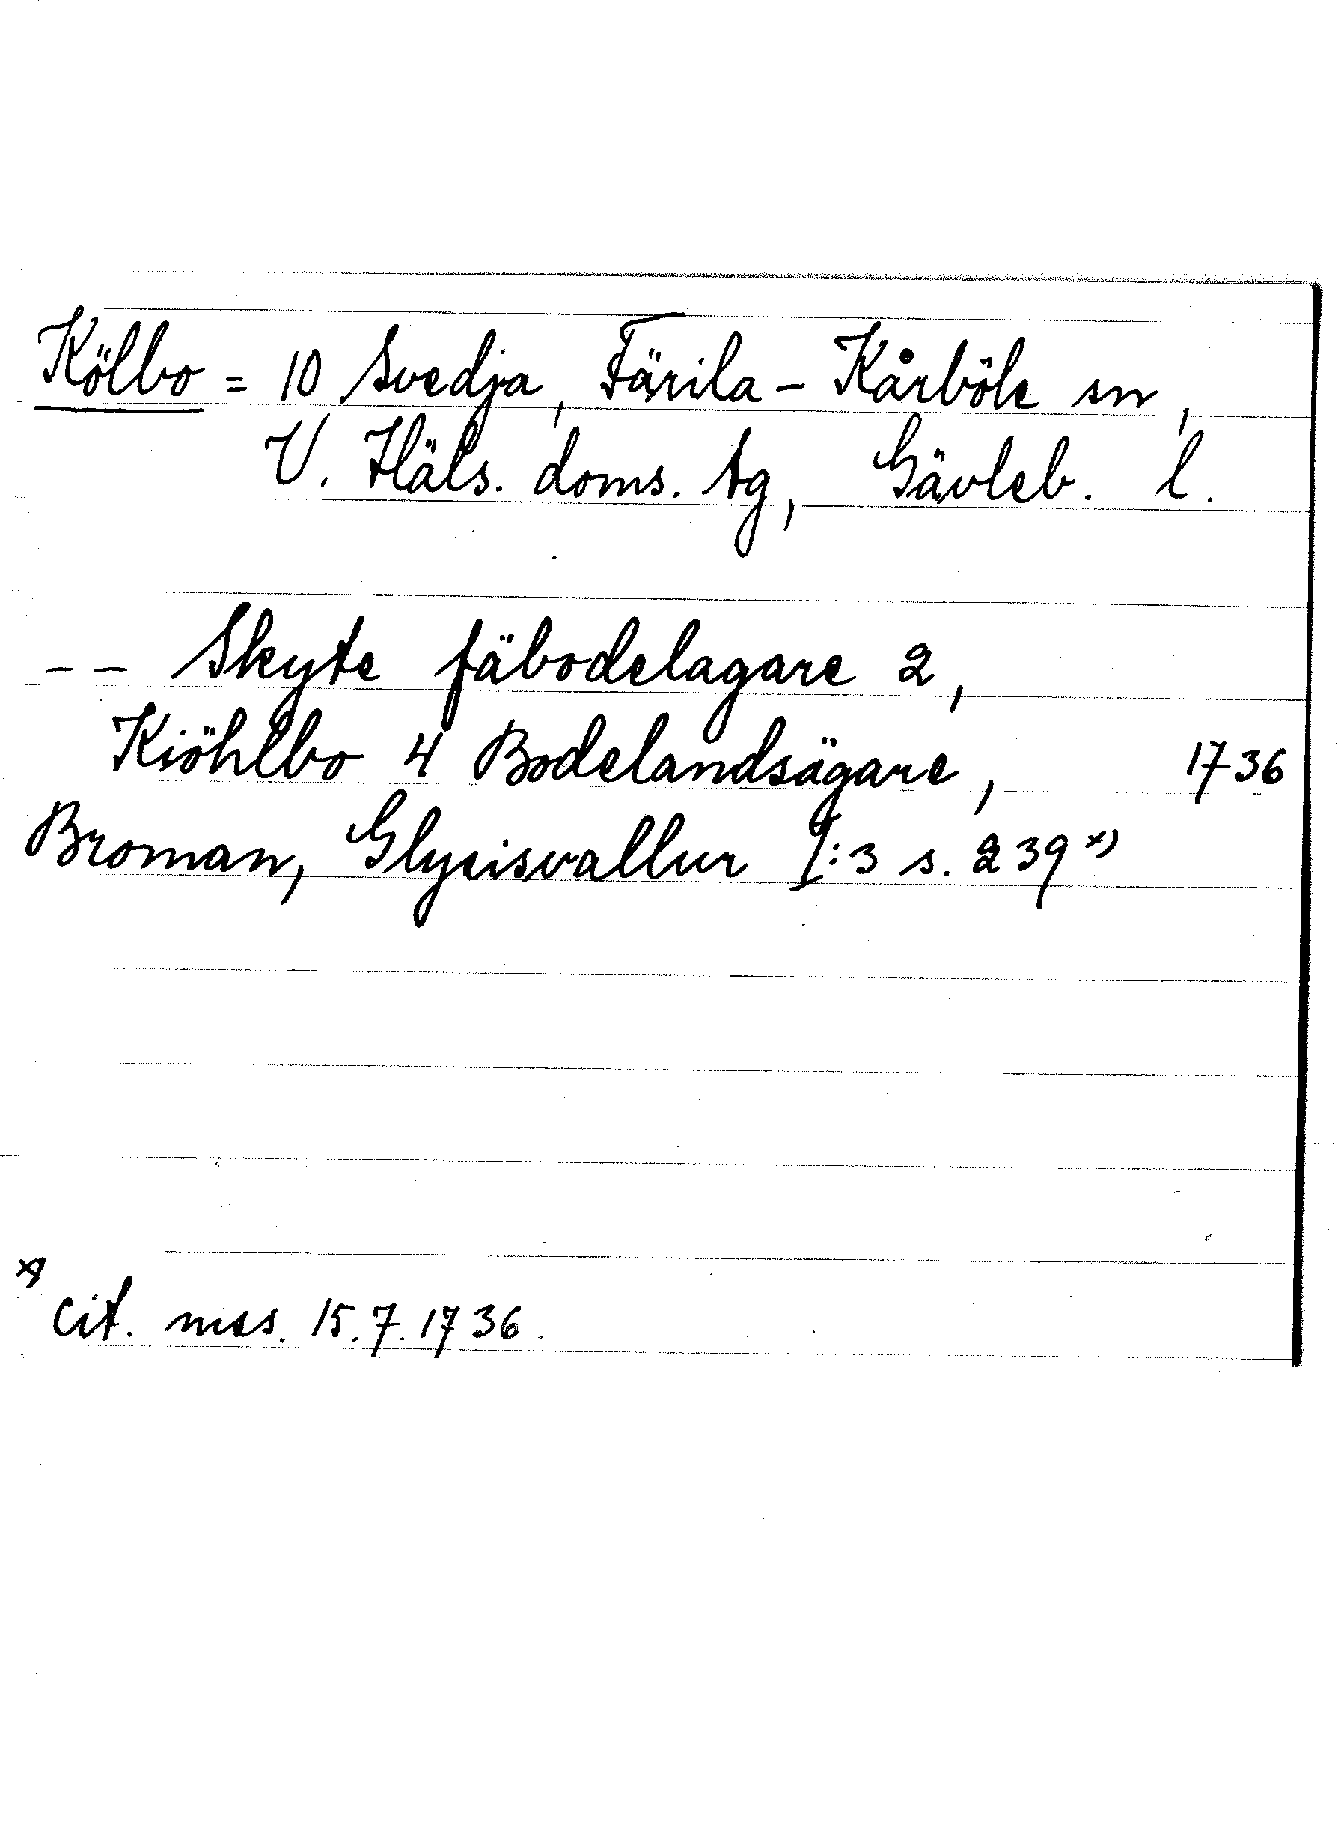 Kölbo = 10 Svedja, Färila - Kårböle sn,
V. Häls. doms. sg, Gävleb. l.
- - Skyte fäbodelagare 2,
Kiöhlbo 4 Bodelandsägare, 1736
Broman, Glysisvallur I:3 s. 239 x)
x)
cit. mss. 15.7.1736.